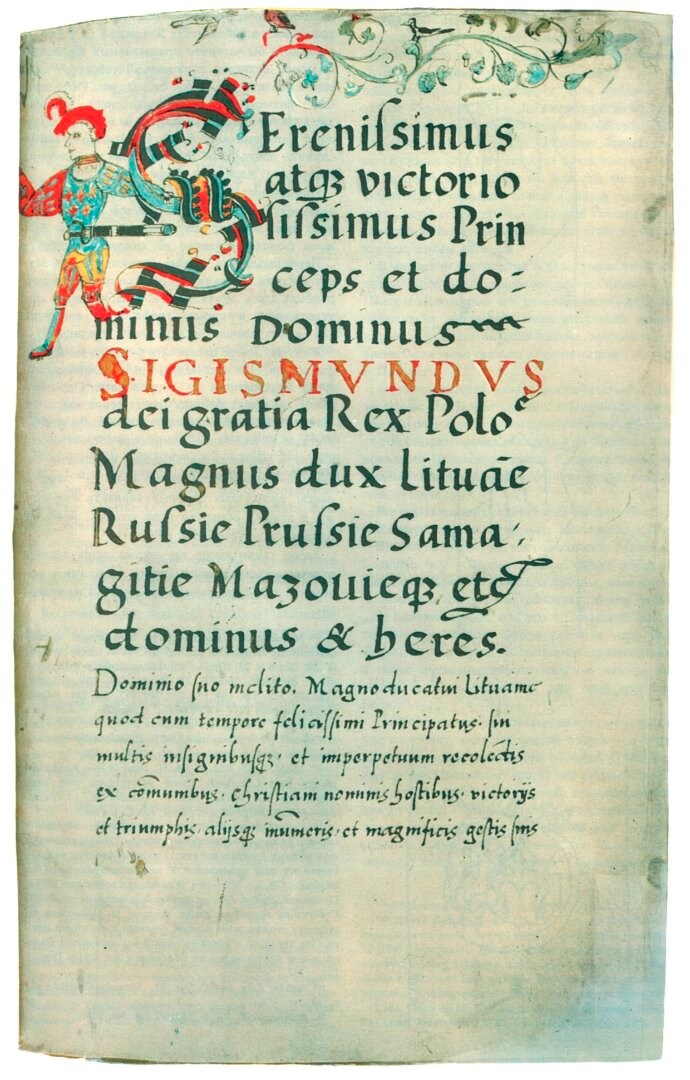 SEreniſsimus
atqꝫ victorio
ſiſsimus Prin
ceps et do:
minus Dominus
SIGISMVNDVS
dei gratia Rex Polo^e
Magnus dux Lituāe
Ruſsie Pruſsie Sama:
gitie Mazouieqꝫ etc
dominus & heres.
Dominio ſuo inclito. Magnoducatui Lituanie
quod cum tempore feliciſſimi Principatus. ſui
multis inſignibuſqꝫ. et imperpetuum recolēctis
ex cōmunibus. Chriſtiani nominis hoſtibus. victorijs
et triumphis. alijsqꝫ inūmeris. et magnificis geſtis ſuis